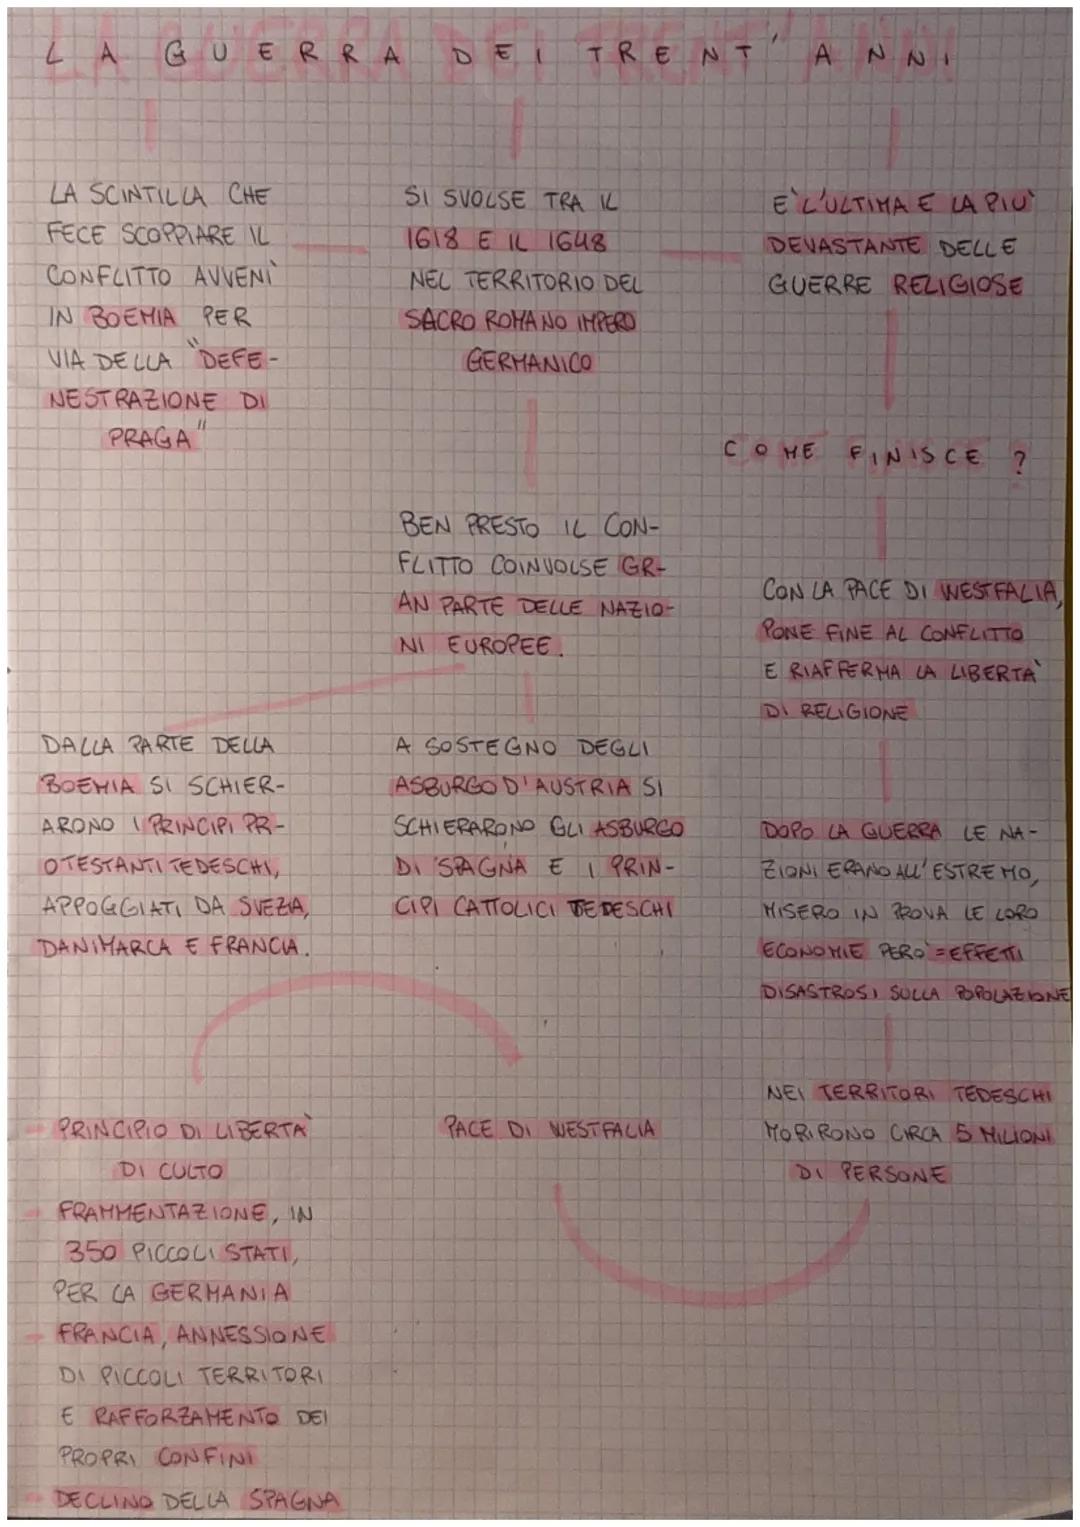 LA GUERRA DEI TRENT'ANNI
LA SCINTILLA CHE
FECE SCOPPIARE IL
CONFLITTO AVVENÌ
IN BOEMIA PER
VIA DELLA "DEFE-
NESTRAZIONE DI
PRAGA"
SI SVOLSE TRA IL
1618 E IL 1648
NEL TERRITORIO DEL
SACRO ROMANO IMPERO
GERMANICO
E' L'ULTIMA E LA PIU'
DEVASTANTE DELLE
GUERRE RELIGIOSE
COME FINISCE ?
BEN PRESTO IL CON-
FLITTO COINVOLSE GR-
AN PARTE DELLE NAZIO-
NI EUROPEE.
CON LA PACE DI WESTFALIA,
PONE FINE AL CONFLITTO
E RIAFFERMA LA LIBERTA'
DI RELIGIONE
DALLA PARTE DELLA
BOEMIA SI SCHIER-
ARONO I PRINCIPI PR-
OTESTANTI TEDESCHI,
APPOGGIATI DA SVEZIA,
DANIMARCA E FRANCIA.
A SOSTEGNO DEGLI
ASBURGO D'AUSTRIA SI
SCHIERARONO GLI ASBURGO
DI SPAGNA E I PRIN-
CIPI CATTOLICI TEDESCHI
DOPO LA GUERRA LE NA-
ZIONI ERANO ALL'ESTREMO,
MISERO IN PROVA LE LORO
ECONOMIE PERO' = EFFETTI
DISASTROSI SULLA POPOLAZIONE
NEI TERRITORI TEDESCHI
MORIRONO CIRCA 5 MILIONI
DI PERSONE
PACE DI WESTFALIA
- PRINCIPIO DI LIBERTA'
DI CULTO
- FRAMMENTAZIONE, IN
350 PICCOLI STATI,
PER LA GERMANIA
- FRANCIA, ANNESSIONE
DI PICCOLI TERRITORI
E RAFFORZAMENTO DEI
PROPRI CONFINI
- DECLINO DELLA SPAGNA